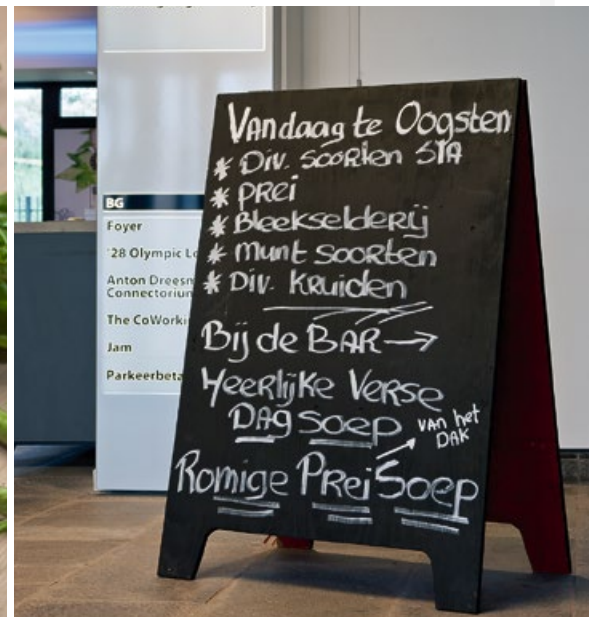 BG
Foyer
'28 Olympic
Anton
Connectorium
The
Jam
Vandaag te Oogsten
* Div. soorten SLA
* PREI
* Bleekselderij
* munt soorten
* Div. Kruiden
Bij de BAR →
Heerlijke Verse
DAG Soep
van het
DAK
Romige Prei Soep